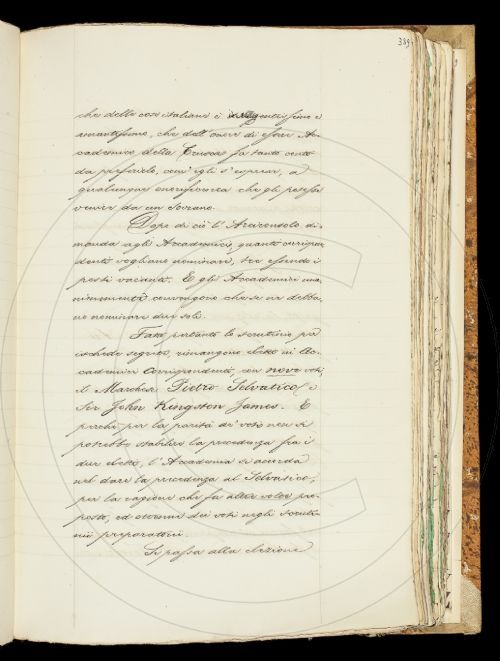 389
che delle cose italiane è intelligentissimo e
amantissimo, che dell'onore di esser Ac-
cademico della Crusca fa tanto conto
da preferirlo, com'egli s'esprime, a
qualunque onorificenza che gli potesse
venire da un Sovrano.
Dopo di ciò l'Arciconsolo di-
manda agli Accademici, quanti corrispon
denti vogliano nominare, tre essendo i
posti vacanti. E gli Accademici una
nimemente convengono che se ne debba-
no nominare due soli.
Fatto pertanto lo scrutinio per
ischede segrete, rimangono eletti in Ac-
cademici Corrispondenti, con nove voti
il Marchese Pietro Selvatico, e
Sir John Kingston James. E
perchè per la parità de' voti non si
potrebbe stabilire la precedenza fra i
due eletti, l'Accademia si accorda
nel dare la precedenza al Selvatico,
per la ragione che fu altre volte pro-
posto, ed ottenne dei voti negli scruti-
nii preparatorii.
Si passa alla elezione